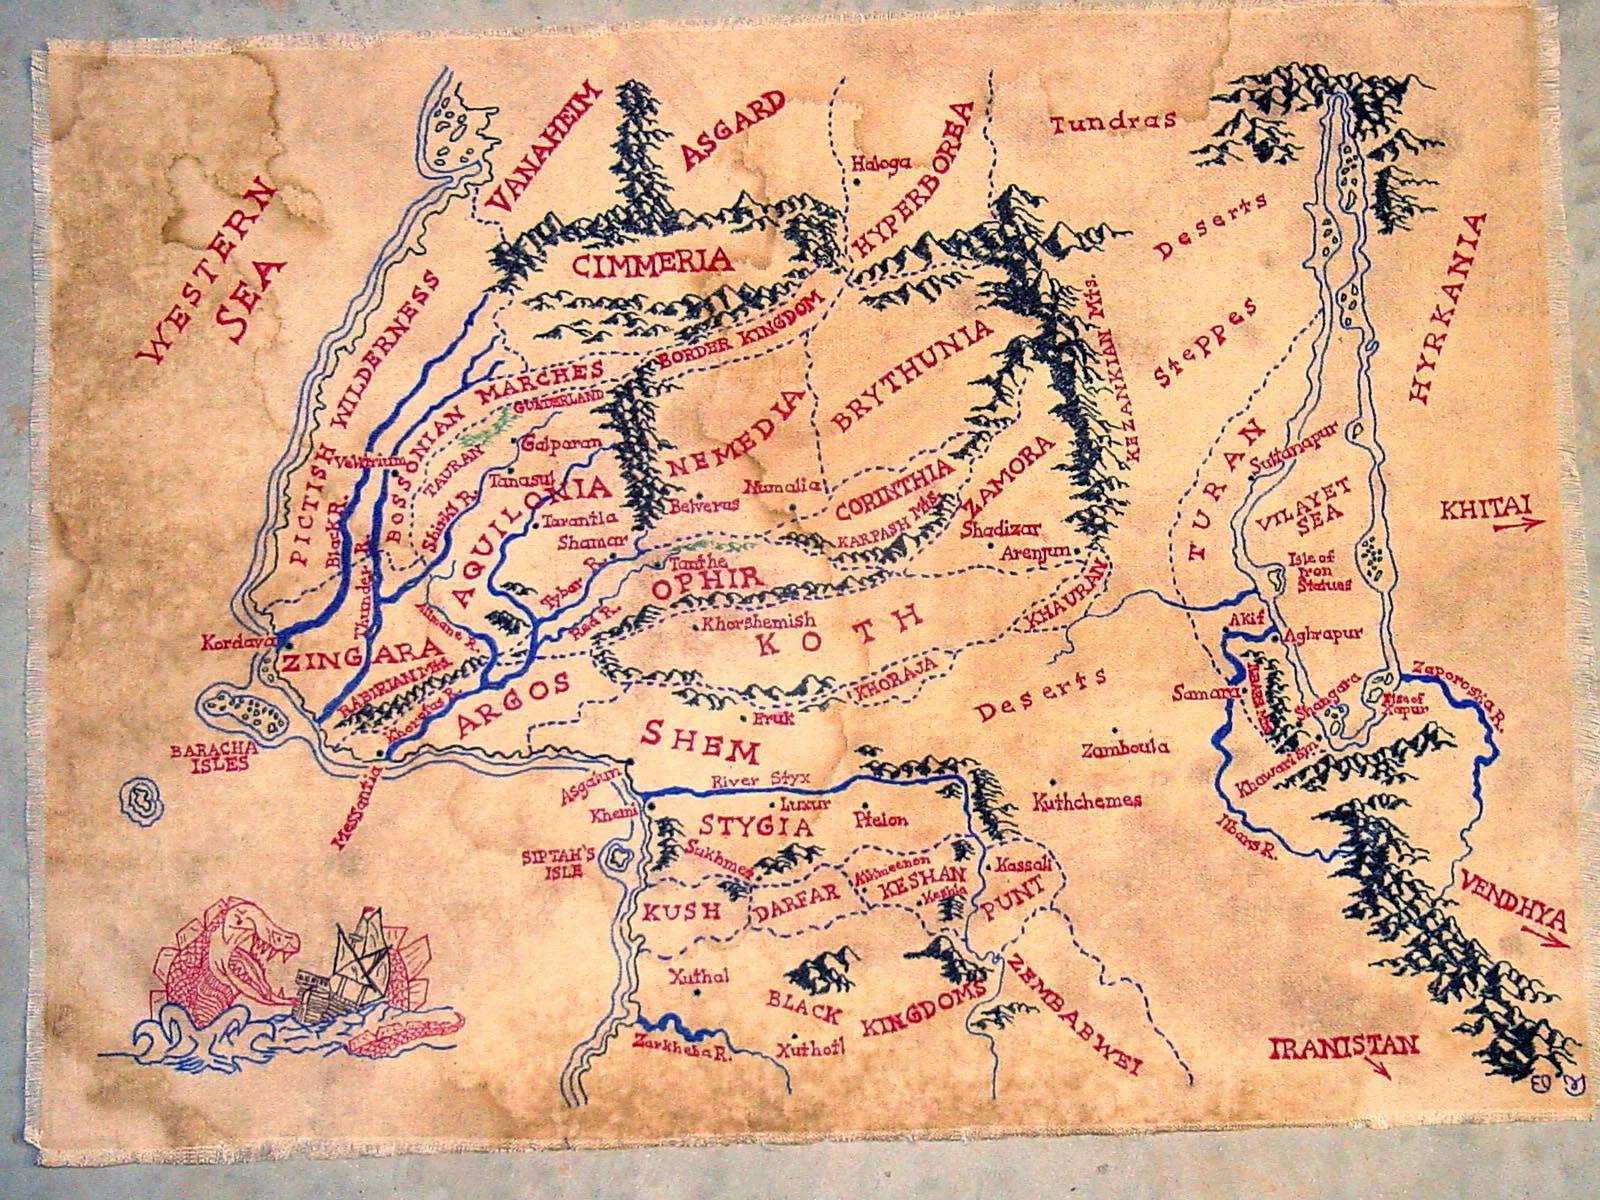 VANAHEIM
ASGARD
Haloga
HYPERBOREA
Tundras
WESTERN
SEA
CIMMERIA
Deserts
HYRKANIA
PICTISH WILDERNESS
BORDER KINGDOM
KEZANKIAN Mts.
Steppes
BOSSONIAN MARCHES
GUNDERLAND
TAURAN
Galparan
NEMEDIA
BRYTHUNIA
Velitrium
Tanasul
AQUILONIA
Belverus
Numalia
CORINTHIA
ZAMORA
TURAN
Sultanapur
VILAYET
SEA
KHITAI
Black R.
Thunder R.
Shirki R.
Tarantia
Shamar
KARPASH Mts.
Shadizar
Arenjun
Isle of
Iron
Statues
Tybor R.
Ianthe
OPHIR
Red R.
Alimane R.
Khorshemish
KOTH
KHAURAN
Akif
Aghrapur
Kordava
ZINGARA
RABIRIAN Mts.
Khorotas R.
ARGOS
KHORAJA
Deserts
Samara
Shangara
Isle of
Xapur
Zaporoska R.
BARACHA
ISLES
Messantia
Eruk
SHEM
Zamboula
Khawarism
Asgalun
River Styx
Khemi
Luxur
Pteion
Kuthchemes
Ilbars R.
STYGIA
SIPTAH'S
ISLE
Sukhmet
KUSH
DARFAR
KESHAN
Keshia
Kassali
PUNT
VENDHYA
Xuthal
BLACK KINGDOMS
ZEMBABWEI
Zarkheba R.
Xuthotl
IRANISTAN